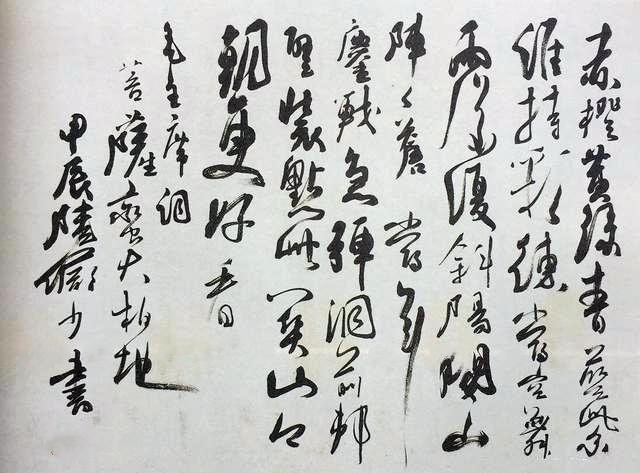 赤橙黃綠青藍紫
誰持彩練當空舞
雨後復斜陽關山
陣々蒼當年
鏖戰急彈洞前邨
壁裝點此關山今
朝更好看
毛主席詞
菩薩蠻大柏地
甲辰陸儼少書